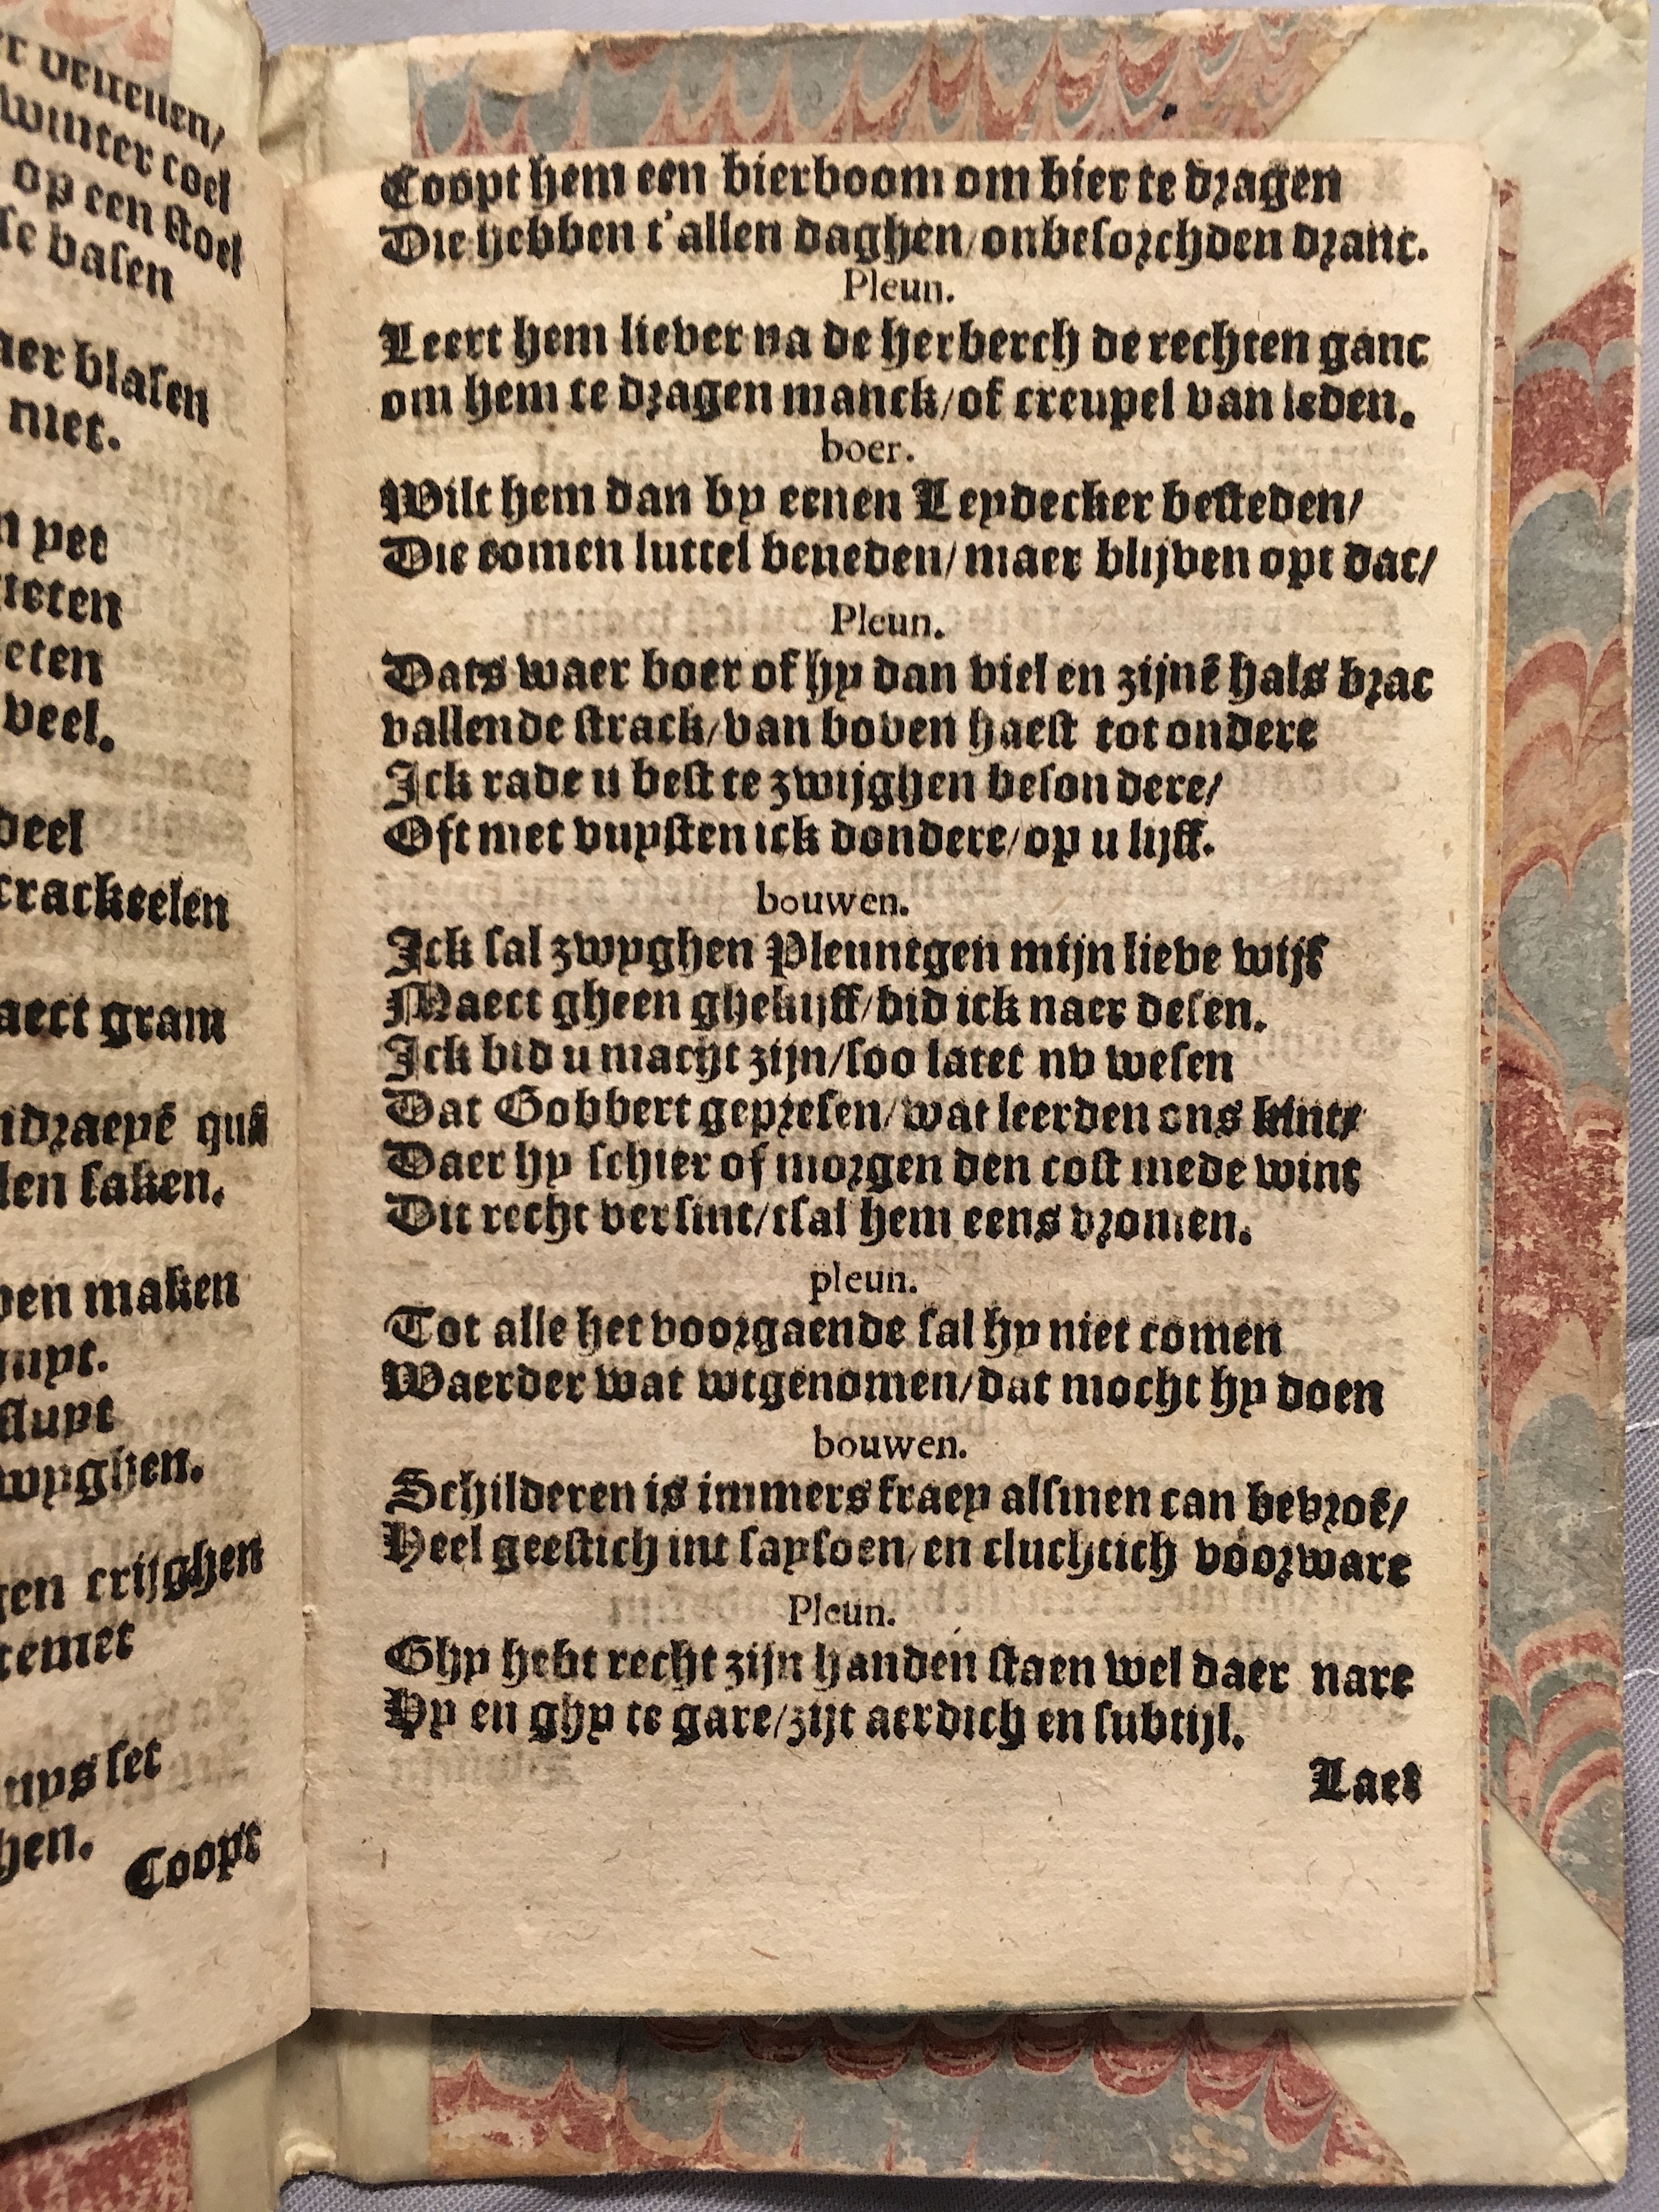 winter coel
op een stoel
basen
blasen
niet.
yet
veel.
deel
crackeelen
gram
qua
saken.
maken
crijghen
temet
set
Coopt
Coopt hem een bierboom om bier te dragen
Die hebben t'allen daghen/onbesorchden dranc.
Pleun.
Leert hem liever na de herberch de rechten ganc
om hem te dragen manck/of creupel van leden.
boer.
Wilt hem dan by eenen Leydecker besteden/
Die comen luttel beneden/maer blijven opt dac/
Pleun.
Dats waer boer of hy dan viel en zijnē hals brac
vallende strack/van boven haest tot ondere
Ick rade u best te zwijghen besondere/
Oft met vuysten ick dondere/op u lijff.
bouwen.
Ick sal zwyghen Pleuntgen mijn lieve wijf
Maect gheen ghekijff/bid ick naer desen.
Ick bid u macht zijn/soo latet nv wesen
Dat Gobbert gepresen/wat leerden ons kint/
Daer hy schier of morgen den cost mede wint
Dit recht versint/tsal hem eens vromen.
pleun.
Tot alle het voorgaende sal hy niet comen
Waerder wat wtgenomen/dat mocht hy doen
bouwen.
Schilderen is immers fraey alsmen can bevroē/
Heel geestich int saysoen/en cluchtich voorware
Pleun.
Ghy hebt recht zijn handen staen wel daer nare
Hy en ghy te gare/zijt aerdich en subtijl.
Laet